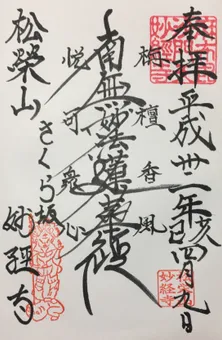 奉拝
平成卅一年己亥四月九日
梅檀香風
南無妙法蓮華経
悦可衆心
さくら坂
松榮山
妙經寺
妙経寺